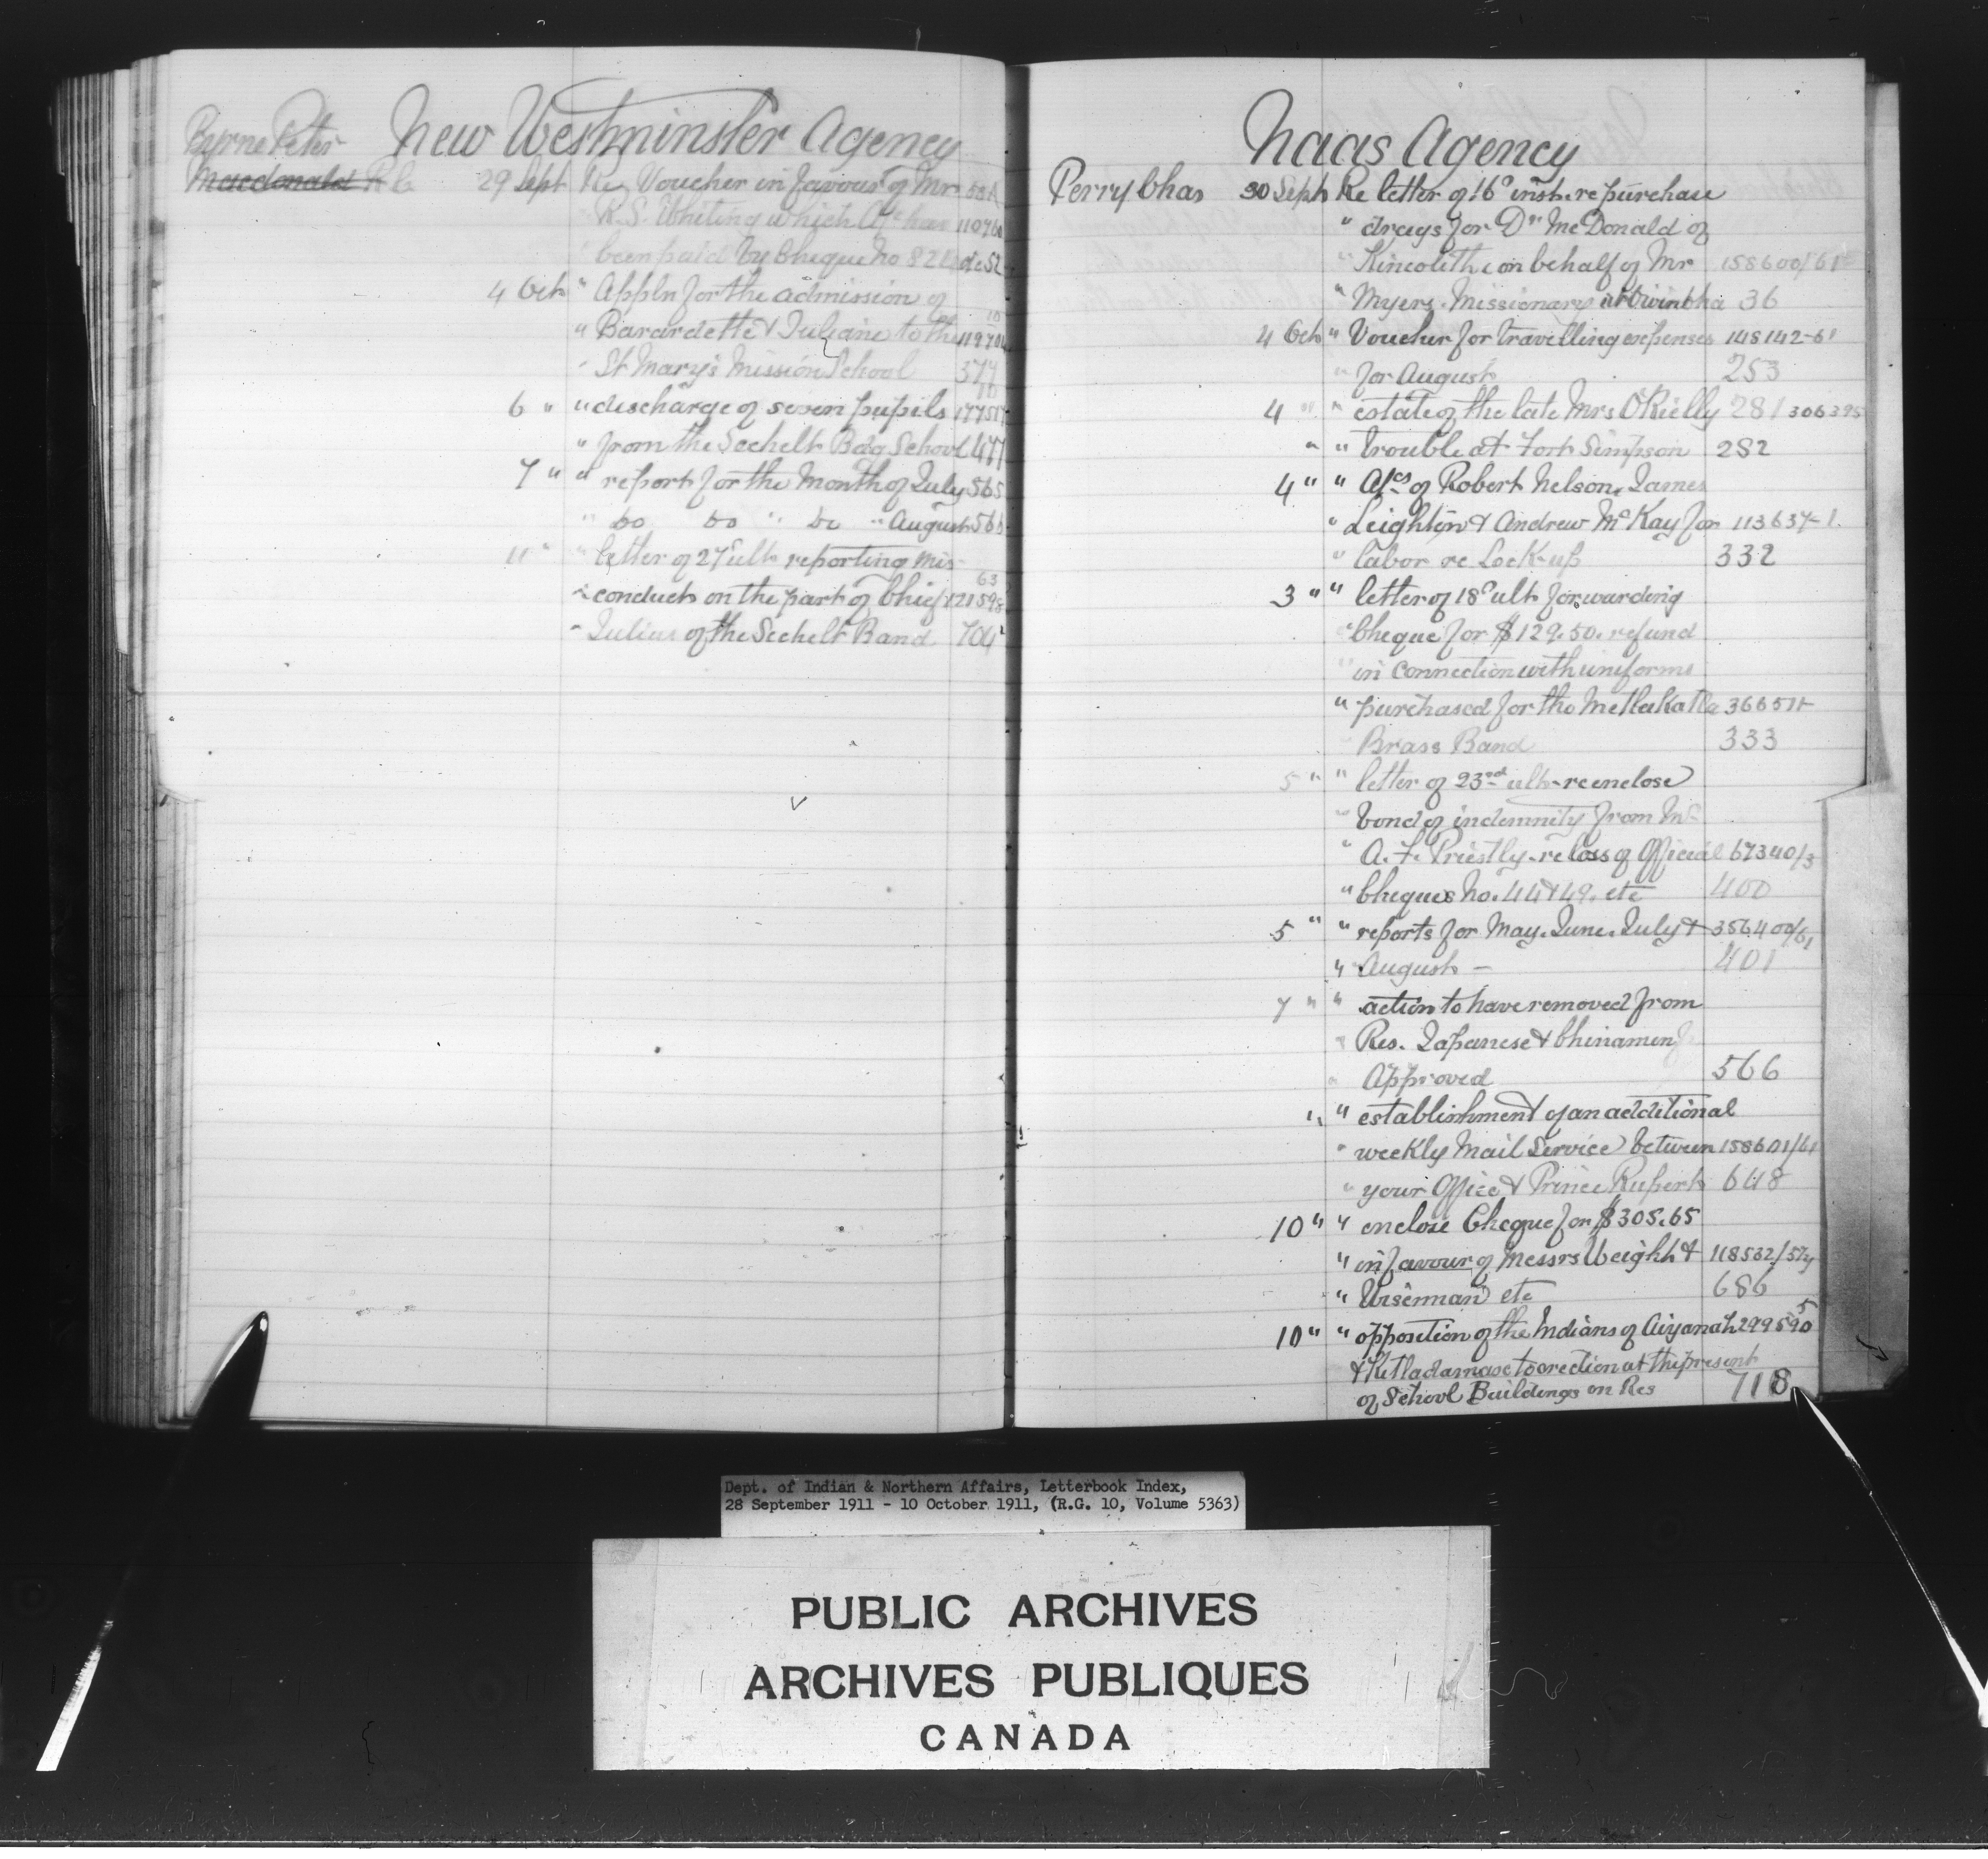 Byrne Peter New Westminster Agency
Macdonald R C 29 Sept Re Voucher in favour of Mr
R.S. Whiting which A/c has
been paid by Cheque No 82 52
4 Oct " Appln for the admission of
" Barardette & Juliane to the
" St Mary's Mission School 377
6 " " discharge of seven pupils
" from the Sechelt Bdg School 477
7 " " report for the Month of July 565
" Do Do " Do " August 566
11 " " letter of 27th ult. reporting mis- 63
" conduct on the part of Chief 121598
" Julius of the Sechelt Band 704
Naas Agency
Perry Chas 30 Sept Re letter of 16th inst. re purchase
" drugs for Dr McDonald of
" Kincolith on behalf of Mr 158600/61
" Myers. Missionary at 36
4 Oct " Voucher for travelling expenses 148142-61
" for August 253
4 " " estate of the late Mrs O'Rielly 281 306395
" " trouble at Fort Simpson 282
4 " " A/cs of Robert Nelson, James
" Leighton & Andrew McKay for 113637-1.
" labor re Lock-up 332
3 " " letter of 18th ult. forwarding
" Cheque for $129.50. refund
" in connection with uniforms
" purchased for the Metlakatla 36651
" Brass Band 333
5 " " letter of 23rd ult. re enclose
" bond of indemnity from Mr
" A. F. Priestly. re loss of Official 67340/3
" Cheques No. 44 & 49. etc 400
5 " " reports for May. June. July & 356400/61
" August - 401
7 " " action to have removed from
" Res. Japanese & Chinamen
" Approved 566
" " establishment of an additional
" weekly Mail Service between 158601/61
" your Office & Prince Rupert 648
10 " " enclose Cheque for $305.65
" in favour of Messrs Weight & 118532/57
" Wiseman etc 686
10 " " opposition of the Indians of Aiyansh 299590 5
& Kitladamax to erection at the present
of School Buildings on Res 718
Dept. of Indian & Northern Affairs, Letterbook Index,
28 September 1911 - 10 October 1911, (R.G. 10, Volume 5363)
PUBLIC ARCHIVES
ARCHIVES PUBLIQUES
CANADA